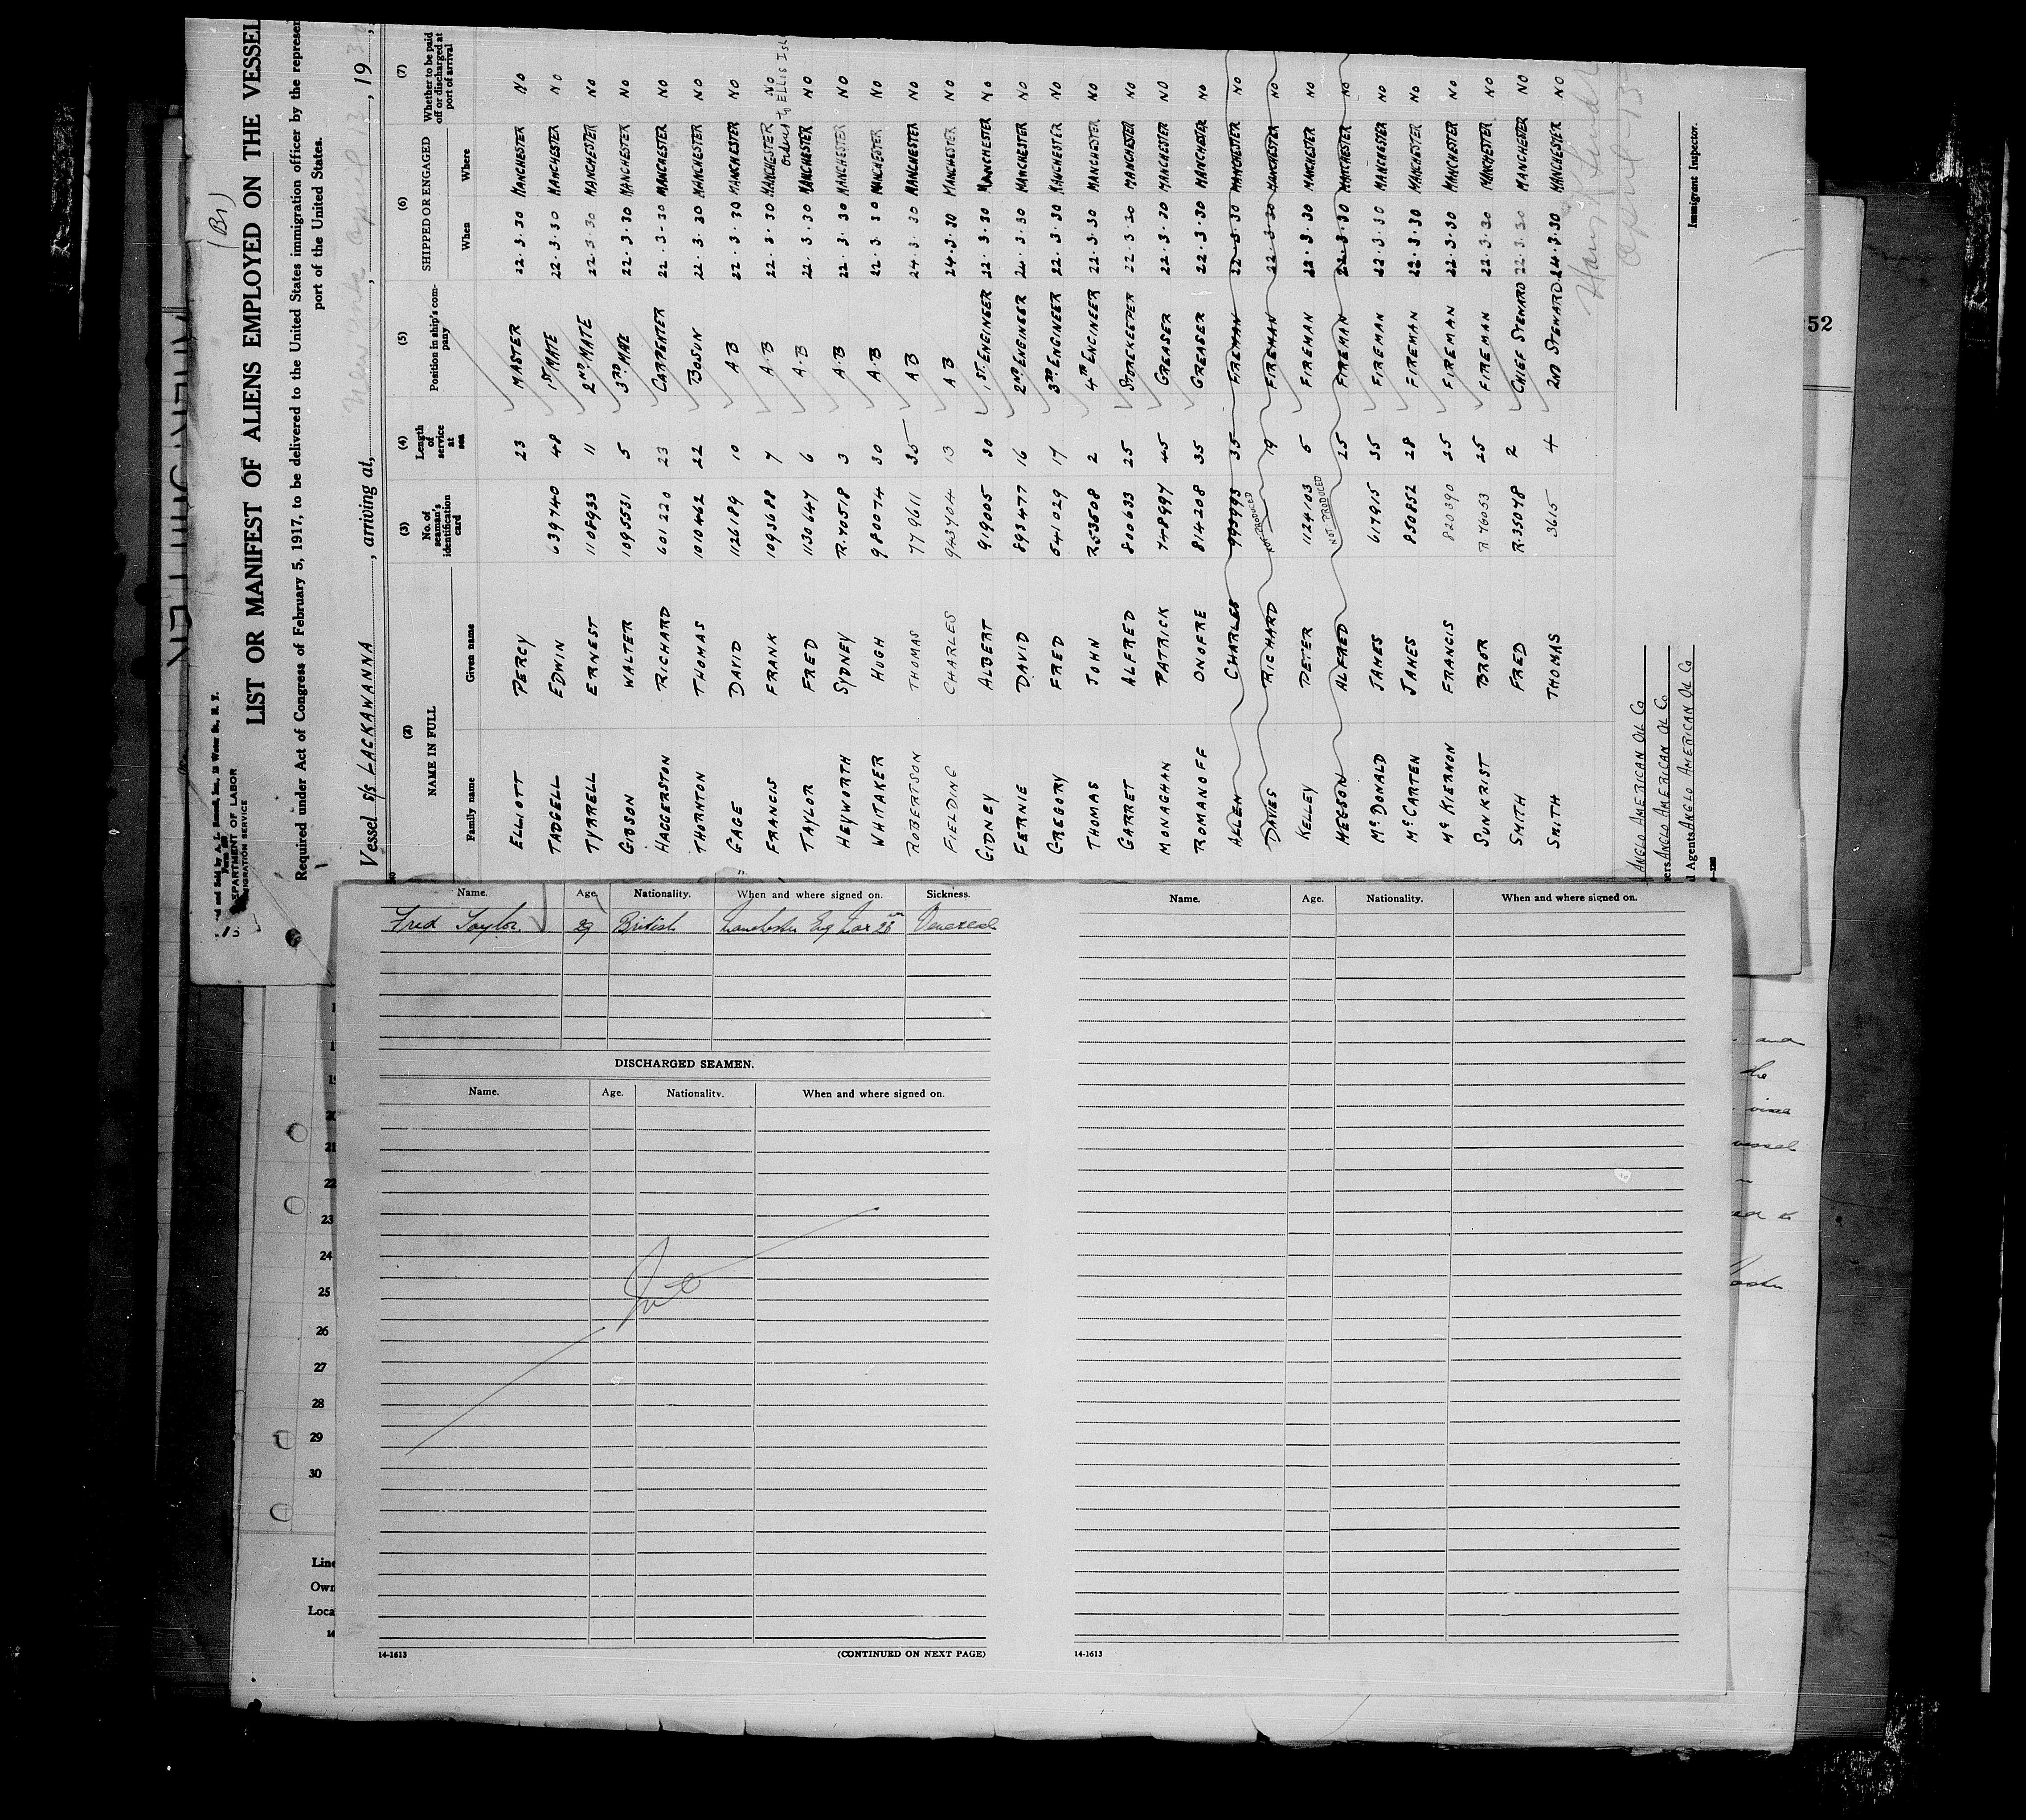 (B1)
LIST OR MANIFEST OF ALIENS EMPLOYED ON THE VESSEL
Required under Act of Congress of February 5, 1917, to be delivered to the United States immigration officer by the represen
port of the United States.
DEPARTMENT OF LABOR
Vessel S/S LACKAWANNA, arriving at, New York April 13, 1930,
(2) (3) (4) (5) (6) (7)
NAME IN FULL No. of seaman's identification card Length of service at sea Position in ship's company SHIPPED OR ENGAGED Whether to be paid off or discharged at port of arrival
Family name Given name When Where
ELLIOTT PERCY 23 MASTER 22.3.30 MANCHESTER NO
TADGELL EDWIN 639740 48 1ST MATE 22.3.30 MANCHESTER NO
TYRRELL ERNEST 1108933 11 2ND MATE 22.3.30 MANCHESTER NO
GIBSON WALTER 1095531 5 3RD MATE 22.3.30 MANCHESTER NO
HAGGERSTON RICHARD 601220 23 CARPENTER 22.3.30 MANCHESTER NO
THORNTON THOMAS 1010462 22 BOSUN 22.3.30 MANCHESTER NO
GAGE DAVID 1126189 10 A B 22.3.30 MANCHESTER NO
FRANCIS FRANK 1093688 7 A.B 22.3.30 MANCHESTER NO
to ELLIS Isl
TAYLOR FRED 1130647 6 A.B 22.3.30 MANCHESTER NO
HEYWORTH SYDNEY R.70518 3 A.B 22.3.30 MANCHESTER NO
WHITAKER HUGH 980074 30 A.B 22.3.30 MANCHESTER NO
ROBERTSON THOMAS 779611 35 A B 24.3.30 MANCHESTER NO
FIELDING CHARLES 943704 13 A B 24.3.30 MANCHESTER NO
GIDNEY ALBERT 919005 30 1ST. ENGINEER 22.3.30 MANCHESTER NO
FERNIE DAVID 893477 16 2ND ENGINEER 24.3.30 MANCHESTER NO
GREGORY FRED 541029 17 3RD ENGINEER 22.3.30 MANCHESTER NO
THOMAS JOHN R53508 2 4TH ENGINEER 22.3.30 MANCHESTER NO
GARRET ALFRED 800633 25 STOREKEEPER 22.3.30 MANCHESTER NO
MONAGHAN PATRICK 748997 45 GREASER 22.3.30 MANCHESTER NO
ROMANOFF ONOFRE 814208 35 GREASER 22.3.30 MANCHESTER NO
ALLEN CHARLES 993993 35 FIREMAN 22.3.30 MANCHESTER NO
DAVIES RICHARD NOT PRODUCED 19 FIREMAN 22.3.30 MANCHESTER NO
KELLEY PETER 1124103 5 FIREMAN 22.3.30 MANCHESTER NO
HEGSON ALFRED NOT PRODUCED 25 FIREMAN 22.3.30 MANCHESTER NO
McDONALD JAMES 617915 35 FIREMAN 22.3.30 MANCHESTER NO
McCARTEN JAMES 850852 28 FIREMAN 22.3.30 MANCHESTER NO
McKIERNON FRANCIS 820390 25 FIREMAN 22.3.30 MANCHESTER NO
SUNKRIST BROR R 76053 25 FIREMAN 22.3.30 MANCHESTER NO
SMITH FRED R.35078 2 CHIEF STEWARD 22.3.30 MANCHESTER NO
SMITH THOMAS 3615 4 2ND STEWARD 24.3.30 MANCHESTER NO
April 13
ANGLO AMERICAN OIL Co
ANGLO AMERICAN OIL Co
Agents ANGLO AMERICAN OIL Co
Immigrant Inspector.
52
Name. Age. Nationality. When and where signed on. Sickness.
Fred Taylor. 29 British Manchester Eng Mar Venereal
DISCHARGED SEAMEN.
Name. Age. Nationality. When and where signed on.
14-1613
(CONTINUED ON NEXT PAGE)
Name. Age. Nationality. When and where signed on.
14-1613
20
21
22
23
24
25
26
27
28
29
30
Line
Own
Loca
and
the
vessel